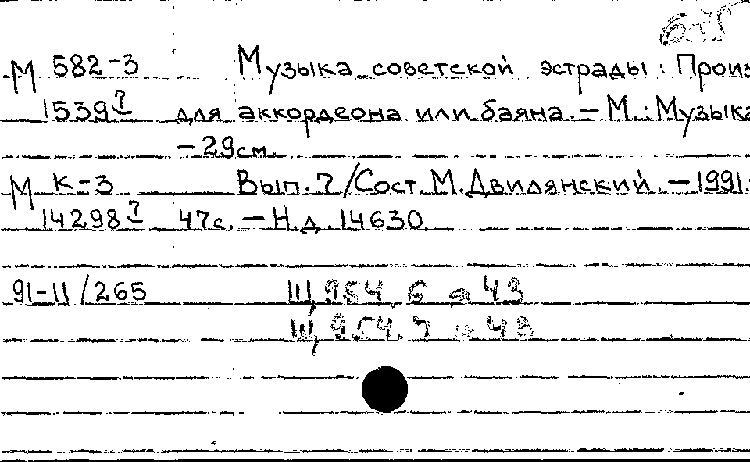 М 582-3 Музыка советской эстрады: Произ
1539 7 для аккордеона или баяна. – М.: Музыка
– 29см.
М К-3 Вып. 7/Сост. М. Двилянский. – 1991.
14298 7 47с. – Н.д. 14630
91-11/265 Щ,954.6 я 43
Щ,954.7 я 43